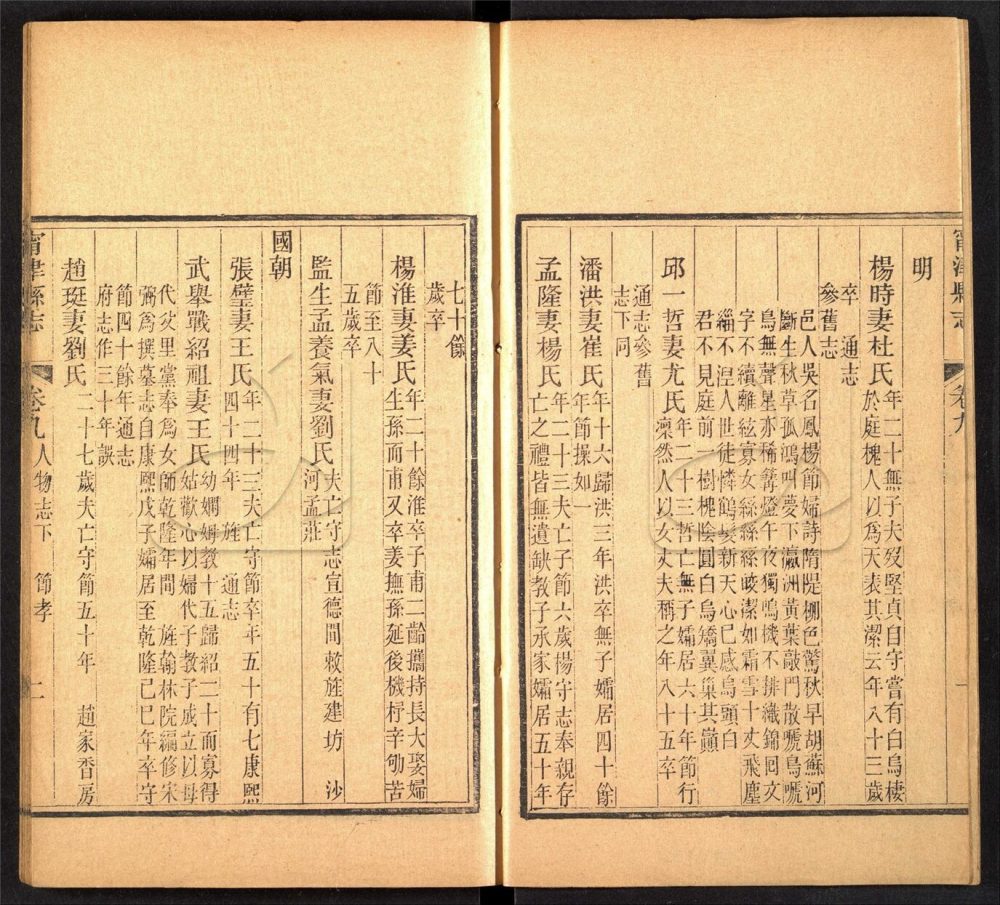 甯津縣志 卷九 一
明
楊時妻杜氏
年二十無子夫歿堅貞自守嘗有白烏棲
於庭槐人以爲天表其潔云年八十三歲
卒 通志
參舊志
邑人吳名鳳楊節婦詩隋隄柳色驚秋早胡蘇河
斷生秋草孤鴻叫夢下瀛洲黃葉敲門散啼烏啼
烏無聲星亦稀篝燈午夜獨鳴機不排織錦回文
字不續離絃寡女絲絲絲皎潔如霜雪十丈飛塵
緇不湼人世徒憐鶴髮新天心已感烏頭白
君不見庭前一樹槐陰圓白烏矯翼巢其巔
邱一哲妻尤氏
年二十三哲亡無子孀居六十年節行
凜然人以女丈夫稱之年八十五卒
通志參舊
志下同
潘洪妻崔氏
年十六歸洪三年洪卒無子孀居四十餘
年節操如一
孟隆妻楊氏
年二十三夫亡子節六歲楊守志奉親存
亡之禮皆無遺缺教子承家孀居五十年
七十餘
歲卒
楊淮妻姜氏
年二十餘淮卒子甫二齡攜持長大娶婦
生孫而甫又卒姜撫孫延後機杼辛劬苦
節至八十
五歲卒
監生孟養氣妻劉氏
夫亡守志宣德間敕旌建坊 沙
河孟莊
國朝
張璧妻王氏
年二十三夫亡守節卒年五十有七康熙
四十四年 旌 通志
武舉戰紹祖妻王氏
幼嫻姆教十五歸紹二十而寡得
姑歡心以婦代子教子成立以母
代父里黨奉爲女師乾隆年間 旌翰林院編修宋
弼爲撰墓志自康熙戊子孀居至乾隆己巳年卒守
節四十餘年通志
府志作三十年誤
趙珽妻劉氏
二十七歲夫亡守節五十年 趙家香房
甯津縣志 卷九 人物志下 節孝 二